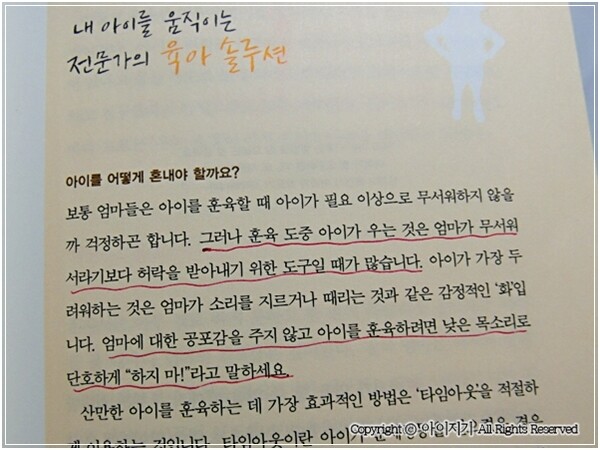 내 아이를 움직이는
전문가의 육아 솔루션
아이를 어떻게 혼내야 할까요?
보통 엄마들은 아이를 훈육할 때 아이가 필요 이상으로 무서워하지 않을
까 걱정하곤 합니다. 그러나 훈육 도중 아이가 우는 것은 엄마가 무서워
서라기보다 허락을 받아내기 위한 도구일 때가 많습니다. 아이가 가장 두
려워하는 것은 엄마가 소리를 지르거나 때리는 것과 같은 감정적인 ‘화’입
니다. 엄마에 대한 공포감을 주지 않고 아이를 훈육하려면 낮은 목소리로
단호하게 “하지 마!”라고 말하세요.
산만한 아이를 훈육하는 데 가장 효과적인 방법은 ‘타임아웃’을 적절하
게 이용하는 것입니다. 타임아웃이란 아이가
Copyright ⓒ 아이지기 All Rights Reserved